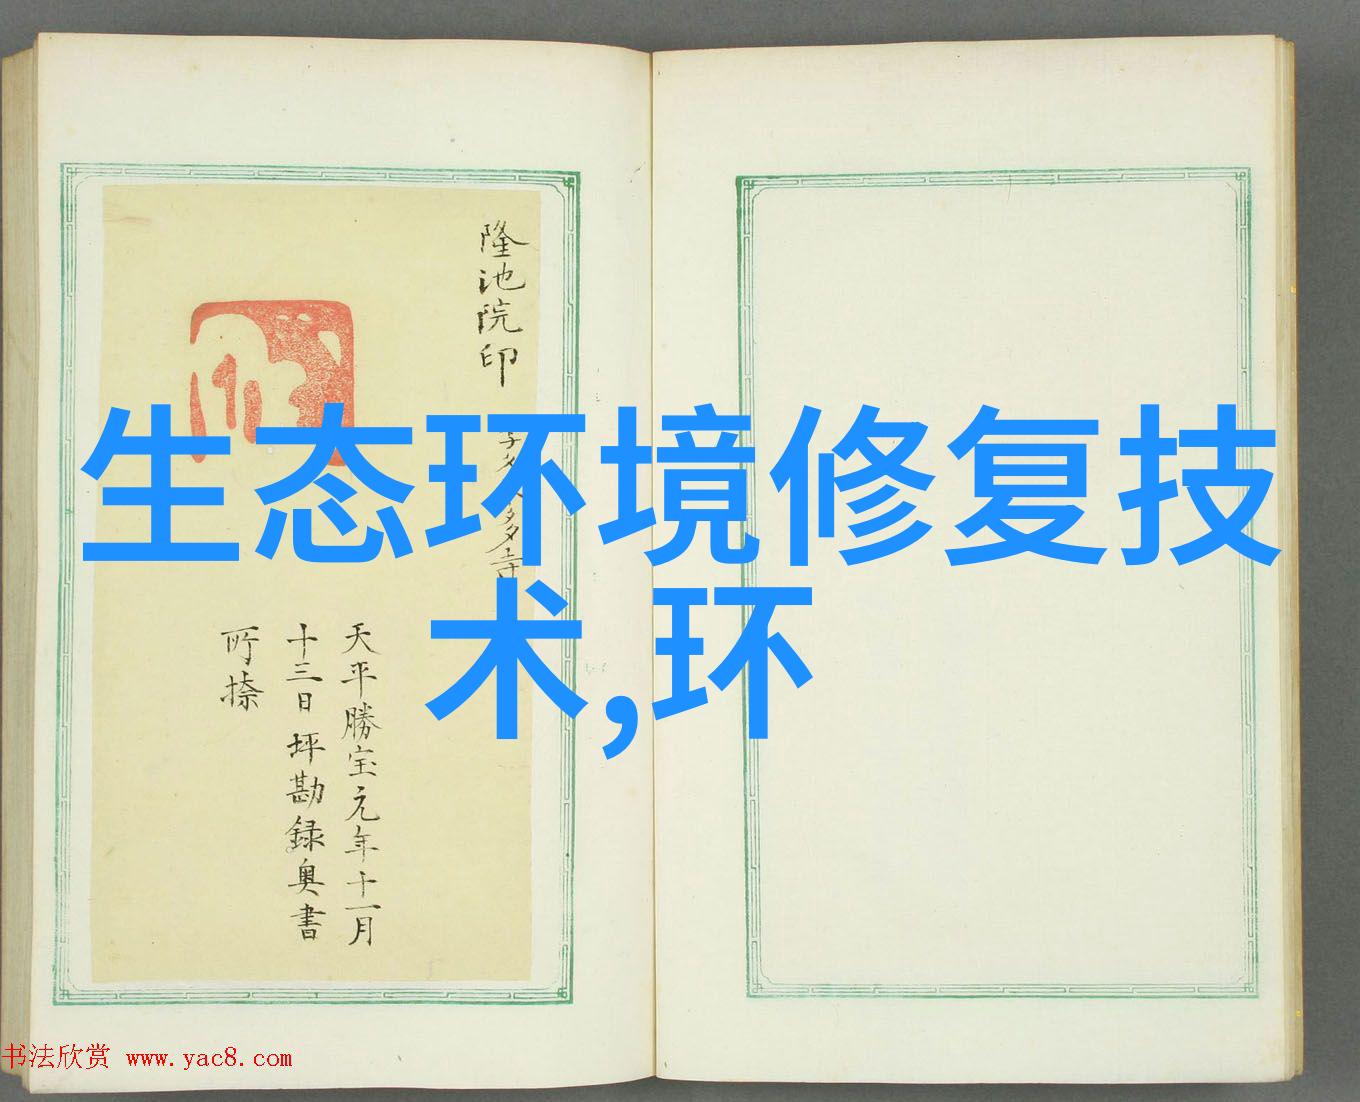 隆池院印
天平勝宝元年十一月
十三日 坪勘録奥書
所捺
生态环境修复技
术,环
书法欣赏 www.yac8.com